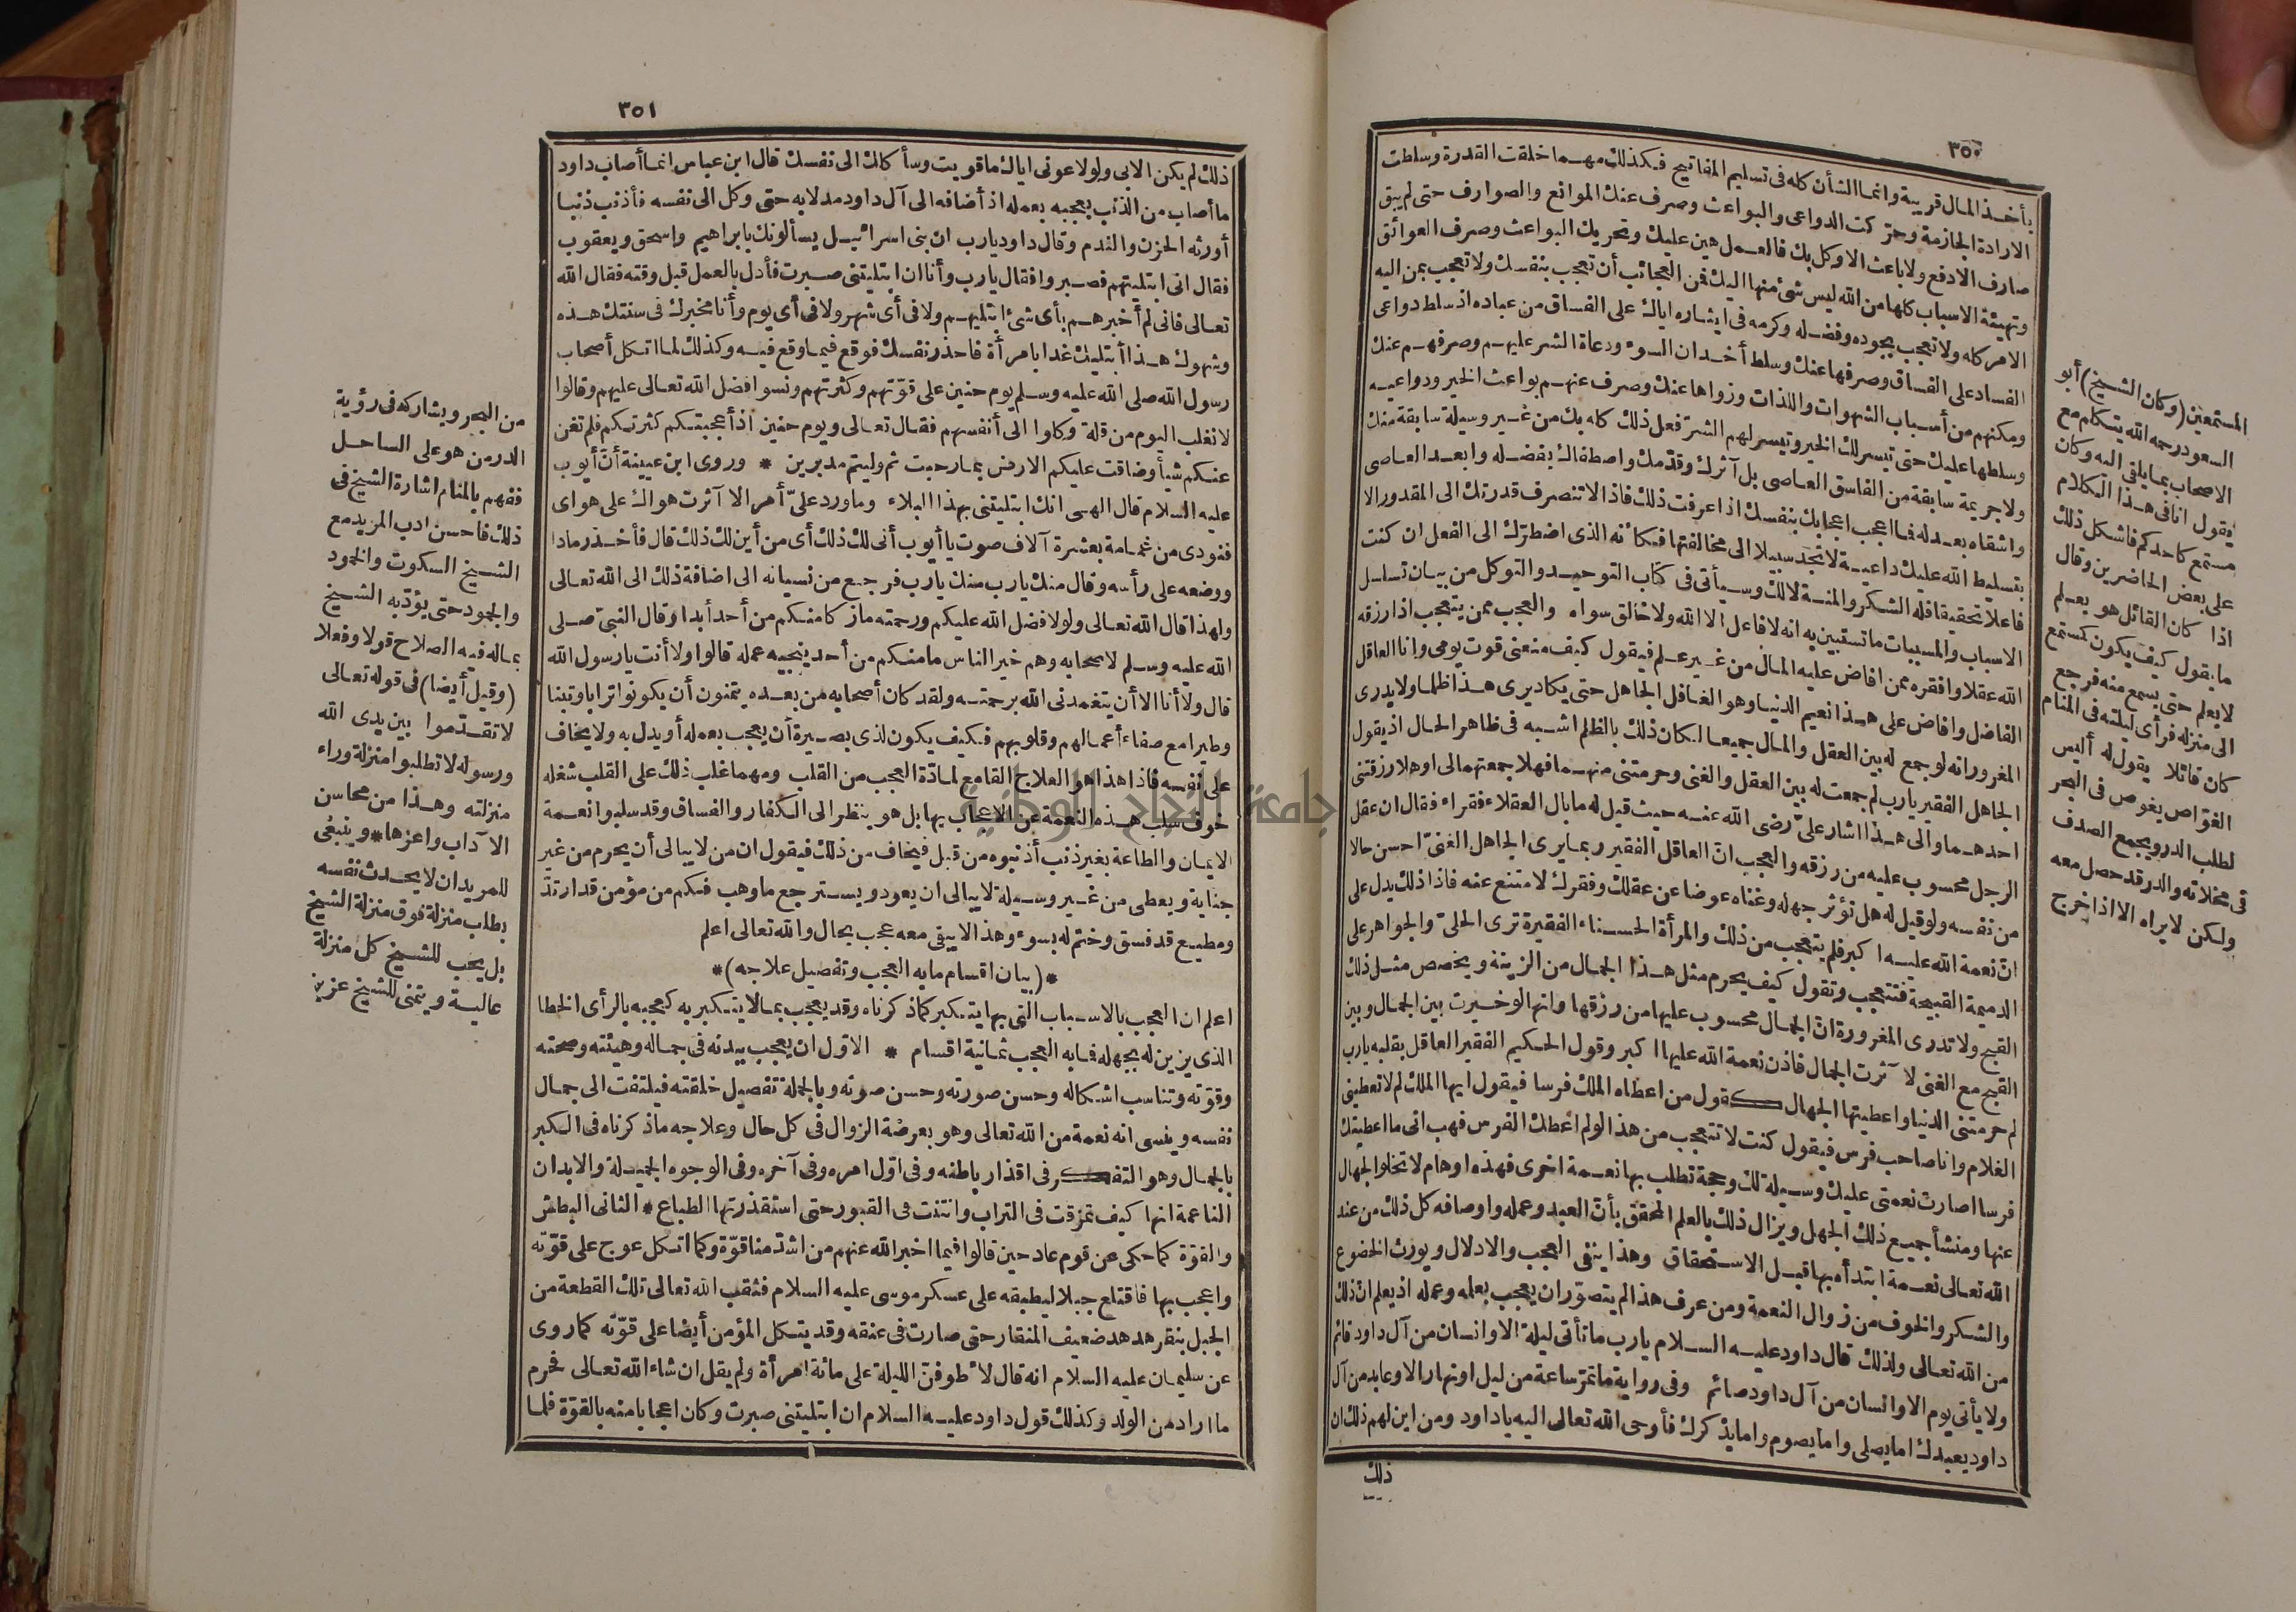 ٣٥٠
يأخذ المال قريبة وانما الشأن كله فى تسليم المفاتيح فكذلك مهما خلقت القدرة وسلطت
الارادة الجازمة وحركت الدواعى والبواعث وصرف عنك الموانع والصوارف حتى لم يبق
صارف الا دفع ولا باعث الا وكل بك فالعمل هين عليك وتحريك البواعث وصرف العوائق
وتهيئة الاسباب كلها من الله ليس شئ منها اليك فمن العجائب أن تعجب بنفسك ولا تعجب بمن اليه
الامر كله ولا تعجب بجوده وفضله وكرمه فى ايثاره اياك على الفساق من عباده اذ سلط دواعى
الفساد على الفساق وصرفها عنك وسلط أخدان السوء ودعاة الشر عليهم وصرفهم عنك
ومكنهم من أسباب الشهوات واللذات وزواها عنك وصرف عنهم بواعث الخير ودواعيه
وسلطها عليك حتى تيسر لك الخير وتيسر لهم الشر فعل ذلك كله بك من غير وسيلة سابقة منك
ولا جريمة سابقة من الفاسق العاصى بل آثرك وقدّمك واصطفاك بفضله وابعد العاصى
واشقاه بعدله فما اعجب اعجابك بنفسك اذا عرفت ذلك فاذا لا تنصرف قدرتك الى المقدور الا
بتسليط الله عليك داعية لا تجد سبيلا الى مخالفتها فكأنه الذى اضطرّك الى الفعل ان كنت
فاعلا تحقيقا فله الشكر والمنة لا لك وسيأتى فى كتاب التوحيد والتوكل من بيان تسلسل
الاسباب والمسببات ما تستبين به انه لا فاعل الا الله ولا خالق سواه والعجب ممن يتعجب اذا رزقه
الله عقلا وافقره ممن افاض عليه المال من غير علم فيقول كيف منعنى قوت يومى وانا العاقل
الفاضل وافاض على هذا نعيم الدنيا وهو الغافل الجاهل حتى يكاد يرى هذا ظلما ولا يدرى
المغرور انه لو جمع له بين العقل والمال جميعا لكان ذلك بالظلم اشبه فى ظاهر الحال اذ يقول
الجاهل الفقير يارب لم جمعت له بين العقل والغنى وحرمتنى منهما فهلا جمعتهما لى اوهلا رزقتنى
احدهما والى هذا اشار علىّ رضى الله عنه حيث قيل له ما بال العقلاء فقراء فقال ان عقل
الرجل محسوب عليه من رزقه والعجب انّ العاقل الفقير ربما يرى الجاهل الغنىّ احسن حالا
من نفسه ولو قيل له هل تؤثر جهله وغناه عوضا عن عقلك وفقرك لامتنع عنه فاذا ذلك يدل على
انّ نعمة الله عليه اكبر فلم يتعجب من ذلك والمرأة الحسناء الفقيرة ترى الحلىّ والجواهر على
الدميمة القبيحة فتتعجب وتقول كيف يحرم مثل هذا الجمال من الزينة ويخصص مثل ذلك
القبح ولا تدرى المغرورة انّ الجمال محسوب عليها من رزقها وانها لو خيرت بين الجمال وبين
القبح مع الغنى لا آثرت الجمال فاذن نعمة الله عليها اكبر وقول الحكيم الفقير العاقل بقلبه يارب
لم حرمتنى الدنيا واعطيتها الجهال كقول من اعطاه الملك فرسا فيقول ايها الملك لم لا تعطينى
الغلام وانا صاحب فرس فيقول كنت لا تتعجب من هذا لو لم أعطك الفرس فهب انى ما اعطيتك
فرسا اصارت نعمتى عليك وسيلة لك وحجة تطلب بها نعمة اخرى فهذه اوهام لا تخلو الجهال
عنها ومنشأ جميع ذلك الجهل ويزال ذلك بالعلم المحقق بأنّ العبد وعمله واوصافه كل ذلك من عند
الله تعالى نعمة ابتدأه بها قبل الاستحقاق وهذا ينفى العجب والادلال ويورث الخضوع
والشكر والخوف من زوال النعمة ومن عرف هذا لم يتصوّر ان يعجب بعلمه وعمله اذ يعلم انّ ذلك
من الله تعالى ولذلك قال داود عليه السلام يارب ما تأتى ليلة الا وانسان من آل داود قائم
ولا يأتى يوم الا وانسان من آل داود صائم وفى رواية ما تمرّ ساعة من ليل او نهار الا وعابد من آل
داود يعبدك اما يصلى واما يصوم واما يذكرك فأوحى الله تعالى اليه يا داود ومن اين لهم ذلك ان
ذلك
المستمعين (وكان الشيخ) أبو
السعود رحمه الله يتكلم مع
الاصحاب بما يلقى اليه وكان
يقول انا فى هذا الكلام
مستمع كاحدكم فاشكل ذلك
على بعض الحاضرين وقال
اذا كان القائل هو يعلم
ما يقول كيف يكون كمستمع
لا يعلم حتى يسمع منه فرجع
الى منزله فرأى ليلته فى المنام
كان قائلا يقول له أليس
الغوّاص يغوص فى البحر
لطلب الدر ويجمع الصدف
فى مخلاته والدر قد حصل معه
ولكن لا يراه الا اذا خرج
٣٥١
ذلك لم يكن الا بى ولولا عونى اياك ما قويت وسأكلك الى نفسك قال ابن عباس انما أصاب داود
ما أصاب من الذنب بعجبه بعمله اذ أضافه الى آل داود مدلا به حتى وكل الى نفسه فأذنب ذنبا
أورثه الحزن والندم وقال داود يارب ان بنى اسرائيل يسألونك بابراهيم واسحق ويعقوب
فقال انى ابتليتهم فصبروا فقال يارب وأنا ان ابتليتنى صبرت فأدل بالعمل قبل وقته فقال الله
تعالى فانى لم أخبرهم بأى شئ ابتليهم ولا فى أى شهر ولا فى أى يوم وأنا مخبرك فى سنتك هذه
وشهرك هذا أبتليك غدا بامرأة فاحذر نفسك فوقع فيما وقع فيه وكذلك لما اتكل أصحاب
رسول الله صلى الله عليه وسلم يوم حنين على قوّتهم وكثرتهم ونسوا فضل الله تعالى عليهم وقالوا
لا نغلب اليوم من قلة وكلوا الى أنفسهم فقال تعالى ويوم حنين اذ أعجبتكم كثرتكم فلم تغن
عنكم شيأ وضاقت عليكم الارض بما رحبت ثم وليتم مدبرين * وروى ابن عيينة أنّ أيوب
عليه السلام قال الهى انك ابتليتنى بهذا البلاء وما ورد علىّ أمر الا آثرت هواك على هواى
فنودى من غمامة بعشرة آلاف صوت يا أيوب أنى لك ذلك أى من أين لك ذلك قال فأخذ رمادا
ووضعه على رأسه وقال منك يارب منك يارب فرجع من نسيانه الى اضافة ذلك الى الله تعالى
ولهذا قال الله تعالى ولولا فضل الله عليكم ورحمته ما زكا منكم من أحد أبدا وقال النبىّ صلى
الله عليه وسلم لاصحابه وهم خير الناس ما منكم من أحد ينجيه عمله قالوا ولا أنت يا رسول الله
قال ولا أنا الا أن يتغمدنى الله برحمته ولقد كان أصحابه من بعده يتمنون أن يكونوا ترابا وتبنا
وطيرا مع صفاء أعمالهم وقلوبهم فكيف يكون لذى بصيرة أن يعجب بعمله أو يدل به ولا يخاف
على نفسه فاذا هذا هو العلاج القامع لمادّة العجب من القلب ومهما غلب ذلك على القلب شغله
خوف سلب هذه النعمة عن الاعجاب بها بل هو ينظر الى الكفار والفساق وقد سلبوا نعمة
الايمان والطاعة بغير ذنب أذنبوه من قبل فيخاف من ذلك فيقول ان من لا يبالى أن يحرم من غير
جناية ويعطى من غير وسيلة لا يبالى ان يعود ويسترجع ما وهب فكم من مؤمن قد ارتدّ
ومطيع قد فسق وختم له بسوء وهذا لا يبقى معه عجب بحال والله تعالى اعلم
*(بيان اقسام ما به العجب وتفصيل علاجه)*
اعلم ان العجب بالاسباب التى بها يتكبر كما ذكرناه وقد يعجب بما لا يتكبر به كعجبه بالرأى الخطا
الذى يزين له بجهله فما به العجب ثمانية اقسام * الاوّل ان يعجب ببدنه فى جماله وهيئته وصحته
وقوّته وتناسب اشكاله وحسن صورته وحسن صوته وبالجملة تفصيل خلقته فيلتفت الى جمال
نفسه وينسى انه نعمة من الله تعالى وهو بعرضة الزوال فى كل حال وعلاجه ما ذكرناه فى الكبر
بالجمال وهو التفكر فى اقذار باطنه وفى اوّل امره وفى آخره وفى الوجوه الجميلة والابدان
الناعمة انها كيف تمزقت فى التراب وانتنت فى القبور حتى استقذرتها الطباع * الثانى البطش
والقوّة كما حكى عن قوم عاد حين قالوا فيما اخبر الله عنهم من اشدّ منا قوّة وكما اتكل عوج على قوّته
واعجب بها فاقتلع جبلا ليطبقه على عسكر موسى عليه السلام فثقب الله تعالى تلك القطعة من
الجبل بنقر هدهد ضعيف المنقار حتى صارت فى عنقه وقد يتكل المؤمن أيضا على قوّته كما روى
عن سليمان عليه السلام انه قال لأطوفنّ الليلة على مائة امرأة ولم يقل ان شاء الله تعالى فحرم
ما اراد من الولد وكذلك قول داود عليه السلام ان ابتليتنى صبرت وكان اعجابا منه بالقوّة فلما
من البحر ويشاركه فى رؤية
الدر من هو على الساحل
ففهم بالمنام اشارة الشيخ فى
ذلك فاحسن ادب المريد مع
الشيخ السكوت والخمود
والجمود حتى يؤدّبه الشيخ
بما له فيه الصلاح قولا وفعلا
(وقيل أيضا) فى قوله تعالى
لا تقدّموا بين يدى الله
ورسوله لا تطلبوا منزلة وراء
منزلته وهذا من محاسن
الآداب واعزها * وينبغى
للمريد ان لا يحدث نفسه
بطلب منزلة فوق منزلة الشيخ
بل يحب للشيخ كل منزلة
عالية ويتمنى للشيخ عزيز
جامعة النجاح الوطنية